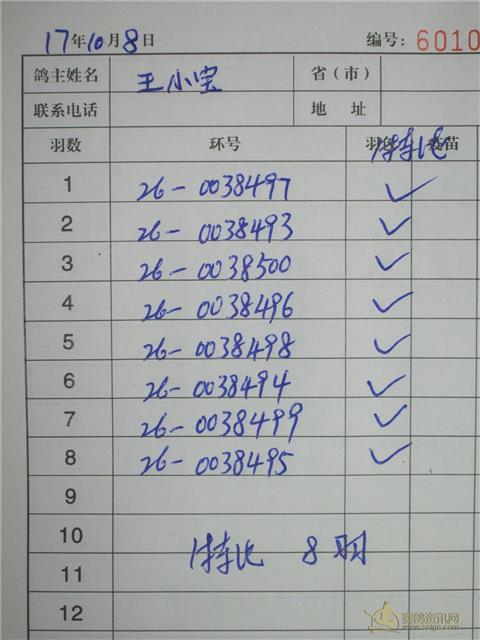 17年10月8日 编号: 6010
鸽主姓名 王小宝 省(市)
联系电话 地 址
羽数 环号 羽色 特比 疫苗
1 26-0038497 ✓
2 26-0038493 ✓
3 26-0038500 ✓
4 26-0038496 ✓
5 26-0038498 ✓
6 26-0038494 ✓
7 26-0038499 ✓
8 26-0038495 ✓
9
10
特比 8羽
11
12
赛鸽资讯网
www.saige.com